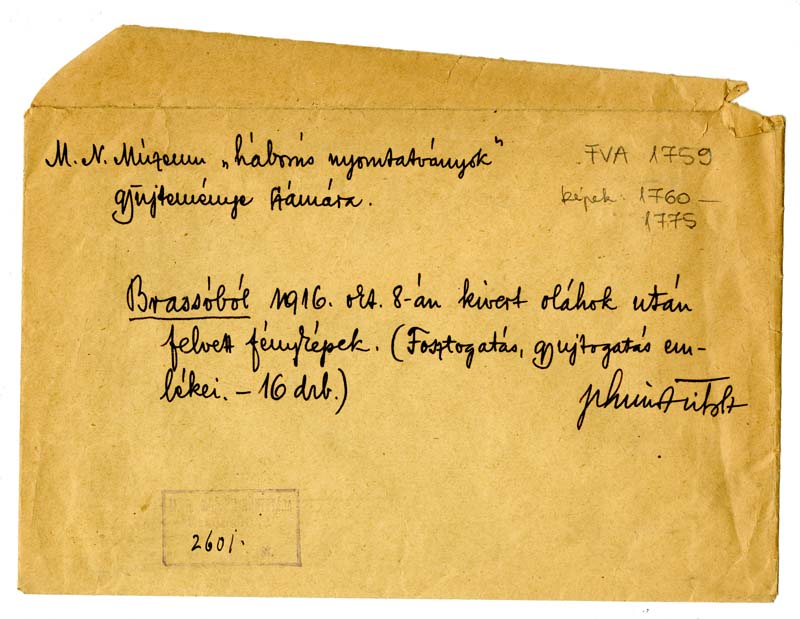 M. N. Múzeum „háborús nyomtatványok"
gyűjteménye számára.
FVA 1759
képek: 1760 –
1775
Brassóból 1916. okt. 8-án kivert oláhok után
felvett fényképek. (Fosztogatás, gyujtogatás em-
lékei. – 16 drb.)
2601.